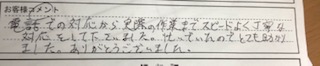 お客様コメント
電話での対応から実際の作業までスピードよく丁寧な
対応をして下さいました。忙っていたのでとても助かり
ました。ありがとうございました。